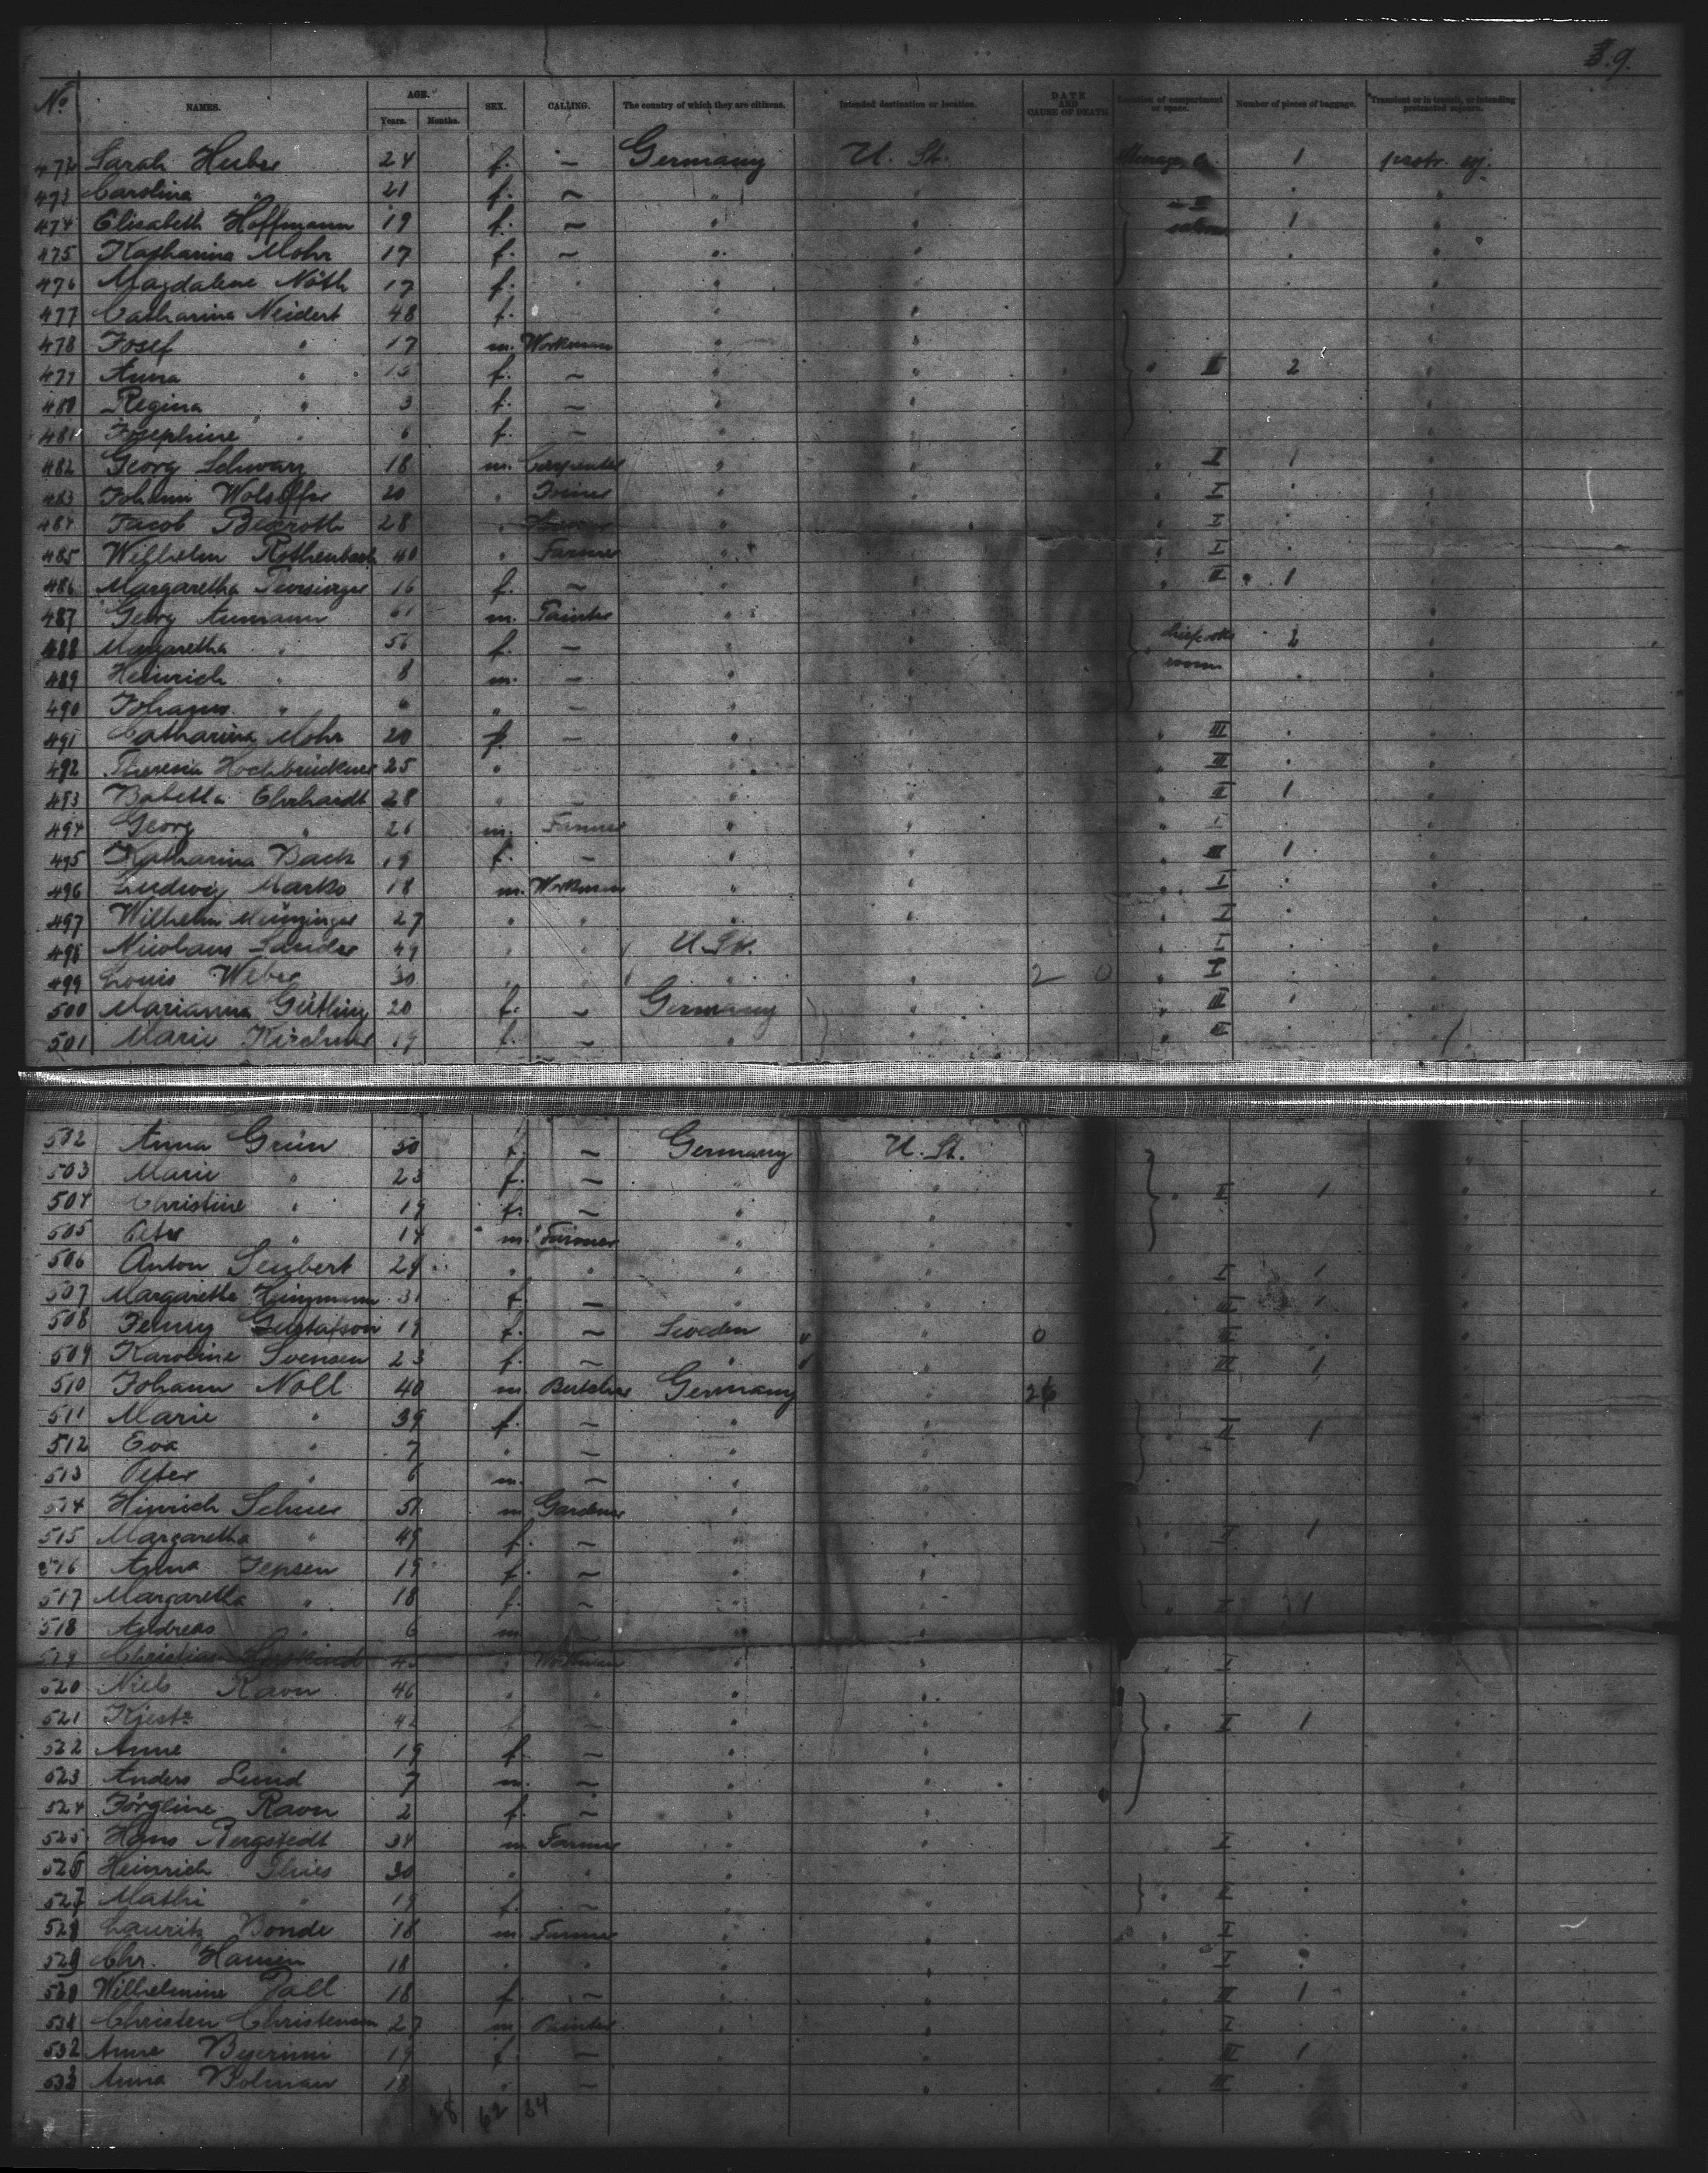 9.
No NAMES. AGE. Years. Months. SEX. CALLING. The country of which they are citizens. Intended destination or location. DATE AND CAUSE OF DEATH Location of compartment or space. Number of pieces of baggage. Transient or in transit, or intending protracted sojourn.
472 Sarah Huber 24 f. — Germany U. St. 1 protr. soj.
473 Carolina " 21 f. — " " " "
474 Elisabeth Hoffmann 19 f. — " " 1 "
475 Katharina Mohr 17 f. — " " " "
476 Magdalene Nöth 17 f. " " " "
477 Catharina Neidert 48 f. " " "
478 Josef " 17 m. Workman " " "
479 Anna " 15 f. — " " " II 2 "
480 Regina " 3 f. — " " "
481 Josephine " 6 f. — " " "
482 Georg Schwarz 18 m. Carpenter " " " I 1 "
483 Johann 20 " Joiner " " " I " "
484 Jacob Bexroth 28 " " " " I " "
485 Wilhelm Rothenbach 40 " Farmer " " " I " "
486 Margaretha 16 f. — " " " II 1 "
487 Georg Aumann 61 m. Painter " " "
488 Margaretha " 56 f. — " " 2 "
489 Heinrich " 8 m. — " " room " "
490 Johann " 6 " — " " "
491 Catharina Mohr 20 f. — " " " III " "
492 Theresia Hochbrückner 25 " " " " III " "
493 Babetta Ehrhardt 28 " " " " II 1 "
494 Georg " 26 m. Farmer " " " I " "
495 Katharina Bach 19 f. — " " " III 1 "
496 Ludwig Marks 18 m. Workman " " " I " "
497 Wilhelm Münzinger 27 " " " " " I " "
498 Nicolaus Sander 49 " " U. St. " " I " "
499 Louis Weber 30 " " " " 2 0 " I " "
500 Marianna Gütling 20 f. — Germany " " III 1 "
501 Marie Kirchner 19 f. — " " " III " "
502 Anna Grün 50 f. — Germany U. St. "
503 Marie " 23 f. — " " " II 1 "
504 Christine " 19 f. — " " "
505 Peter " 14 m. Farmer " " "
506 Anton Seubert 29 " " " " " I 1 "
507 Margaretha Heinzmann 31 f. — " " " III 1 "
508 Jenny Gustafson 19 f. — Sweden " 0 " III " "
509 Karoline Svensen 23 f. — " " " III 1 "
510 Johann Noll 40 m. Butcher Germany " 26 "
511 Marie " 39 f. — " " " II 1 "
512 Eva " 7 " — " " "
513 Peter " 6 m. — " " "
514 Hinrich 51 m. Gardner " " "
515 Margaretha " 49 f. — " " " II 1 "
516 Anna Jepsen 19 f. — " " "
517 Margaretha " 18 f. — " " " I 1 "
518 Andreas " 6 m. — " " "
519 Christian 45 " Workman " " " I " "
520 Niels Ravn 46 " " " " "
521 " 42 f. — " " " II 1 "
522 Anne " 19 f. — " " "
523 Anders Lund 7 m. — " " "
524 Jörgline Ravn 2 f. — " " "
525 Hans Bergstedt 34 m. Farmer " " " I " "
526 Heinrich Thies 30 " " " " "
527 " 19 f. — " " " II " "
528 Lauritz Bonde 18 m. Farmer " " " I " "
529 Chr. Hansen 18 " " " " " I " "
530 Wilhelmine 18 f. — " " " II 1 "
531 Christen Christensen 27 m. Painter " " " I " "
532 Anne 19 f. — " " " III 1 "
533 Anna 18 " — " " " III " "
62